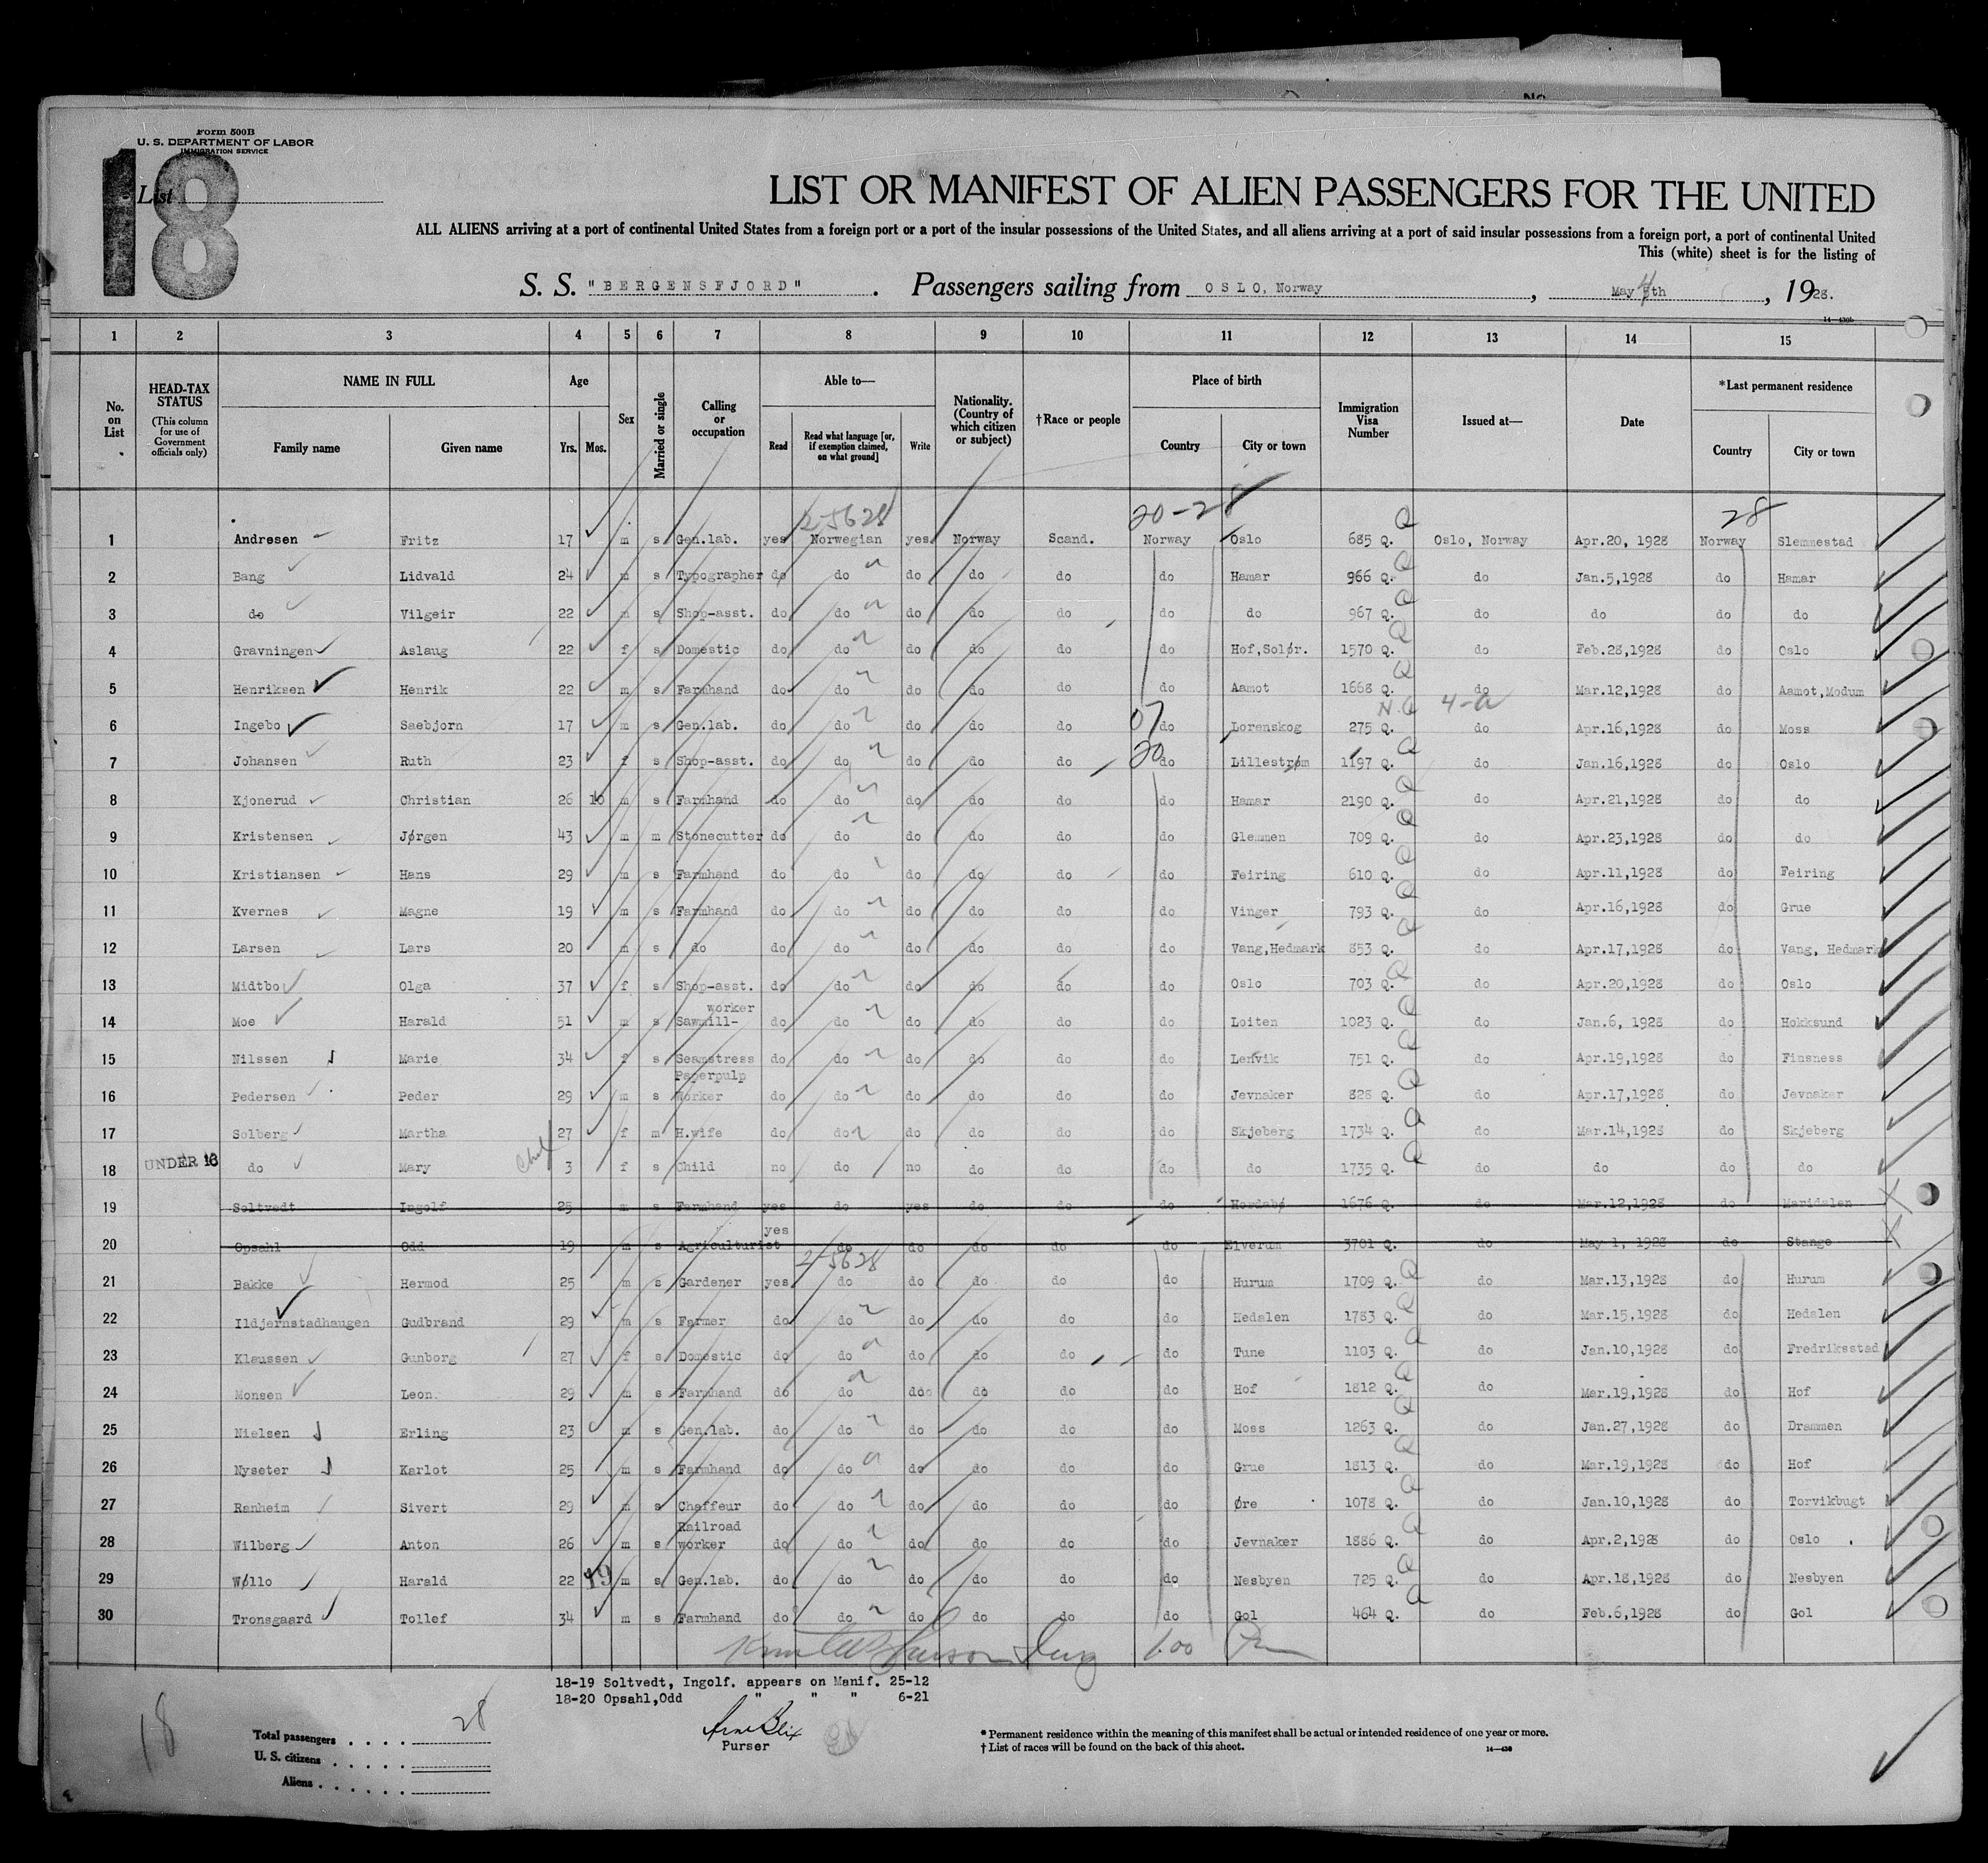 No
Form 500B
U. S. DEPARTMENT OF LABOR
IMMIGRATION SERVICE
18
List
LIST OR MANIFEST OF ALIEN PASSENGERS FOR THE UNITED
ALL ALIENS arriving at a port of continental United States from a foreign port or a port of the insular possessions of the United States, and all aliens arriving at a port of said insular possessions from a foreign port, a port of continental United
This (white) sheet is for the listing of
S. S. "BERGENSFJORD". Passengers sailing from OSLO, Norway, May 4th, 1928.
14—430b
1 2 3 4 5 6 7 8 9 10 11 12 13 14 15
No. on List
HEAD-TAX STATUS (This column for use of Government officials only)
NAME IN FULL Family name Given name
Age Yrs. Mos.
Sex
Married or single
Calling or occupation
Able to— Read Read what language [or, if exemption claimed, on what ground] Write
Nationality. (Country of which citizen or subject)
†Race or people
Place of birth Country City or town
Immigration Visa Number
Issued at—
Date
*Last permanent residence Country City or town
2-5628 20-28 28
1 Andresen Fritz 17 m s Gen.lab. yes Norwegian yes Norway Scand. Norway Oslo 685 Q. Oslo, Norway Apr.20, 1928 Norway Slemmestad
2 Bang Lidvald 24 m s Typographer do do do do do do Hamar 966 Q. do Jan.5,1928 do Hamar
3 do Vilgeir 22 m s Shop-asst. do do do do do do do 967 Q. do do do do
4 Gravningen Aslaug 22 f s Domestic do do do do do do Hof,Solør. 1570 Q. do Feb.28,1928 do Oslo
5 Henriksen Henrik 22 m s Farmhand do do do do do do Aamot 1668 Q. do Mar.12,1928 do Aamot,Modum
N.Q 4-a
6 Ingebo Saebjorn 17 m s Gen.lab. do do do do do 07 do Lorenskog 275 Q. do Apr.16,1928 do Moss
7 Johansen Ruth 23 f s Shop-asst. do do do do do 20 do Lillestrøm 1197 Q. do Jan.16,1928 do Oslo
8 Kjonerud Christian 26 10 m s Farmhand do do do do do do Hamar 2190 Q. do Apr.21,1928 do do
9 Kristensen Jørgen 43 m m Stonecutter do do do do do do Glemmen 709 Q. do Apr.23,1928 do do
10 Kristiansen Hans 29 m s Farmhand do do do do do do Feiring 610 Q. do Apr.11,1928 do Feiring
11 Kvernes Magne 19 m s Farmhand do do do do do do Vinger 793 Q. do Apr.16,1928 do Grue
12 Larsen Lars 20 m s do do do do do do do Vang,Hedmark 853 Q. do Apr.17,1928 do Vang, Hedmark
13 Midtbo Olga 37 f s Shop-asst. do do do do do do Oslo 703 Q. do Apr.20,1928 do Oslo
worker
14 Moe Harald 51 m s Sawmill- do do do do do do Loiten 1023 Q. do Jan.6, 1928 do Hokksund
15 Nilssen Marie 34 f s Seamstress do do do do do do Lenvik 751 Q. do Apr.19,1928 do Finsness
Paperpulp
16 Pedersen Peder 29 m s worker do do do do do do Jevnaker 828 Q. do Apr.17,1928 do Jevnaker
17 Solberg Martha 27 f m H.wife do do do do do do Skjeberg 1734 Q. do Mar.14,1928 do Skjeberg
18 UNDER 16 do Mary 3 f s Child no do no do do do do 1735 Q. do do do do
19 Soltvedt Ingolf 25 m s Farmhand yes do yes do do do Hordabø 1676 Q. do Mar.12,1928 do Maridalen
yes
20 Opsahl Odd 19 m s Agriculturist do do do do do Elverum 3701 Q. do May 1, 1928 do Stange
2-5628
21 Bakke Hermod 25 m s Gardener yes do do do do do Hurum 1709 Q. do Mar.13,1928 do Hurum
22 Ildjernstadhaugen Gudbrand 29 m s Farmer do do do do do do Hedalen 1783 Q. do Mar.15,1928 do Hedalen
23 Klaussen Gunborg 27 f s Domestic do do do do do do Tune 1103 Q. do Jan.10,1928 do Fredriksstad
24 Monsen Leon. 29 m s Farmhand do do do do do do Hof 1812 Q. do Mar.19,1928 do Hof
25 Nielsen Erling 23 m s Gen.lab. do do do do do do Moss 1263 Q. do Jan.27,1928 do Drammen
26 Nyseter Karlot 25 m s Farmhand do do do do do do Grue 1813 Q. do Mar.19,1928 do Hof
27 Ranheim Sivert 29 m s Chaffeur do do do do do do Øre 1078 Q. do Jan.10,1928 do Torvikbugt
Railroad
28 Wilberg Anton 26 m s worker do do do do do do Jevnaker 1886 Q. do Apr.2,1928 do Oslo
29 Wøllo Harald 22 19 m s Gen.lab. do do do do do do Nesbyen 725 Q. do Apr.18,1928 do Nesbyen
30 Tronsgaard Tollef 34 m s Farmhand do do do do do do Gol 464 Q. do Feb.6,1928 do Gol
1.00
18-19 Soltvedt, Ingolf. appears on Manif. 25-12
18-20 Opsahl,Odd " " " 6-21
18
Total passengers . . . . 28
U. S. citizens . . . . .
Aliens . . . . . .
Arne Blix
Purser
* Permanent residence within the meaning of this manifest shall be actual or intended residence of one year or more.
† List of races will be found on the back of this sheet.
14—430